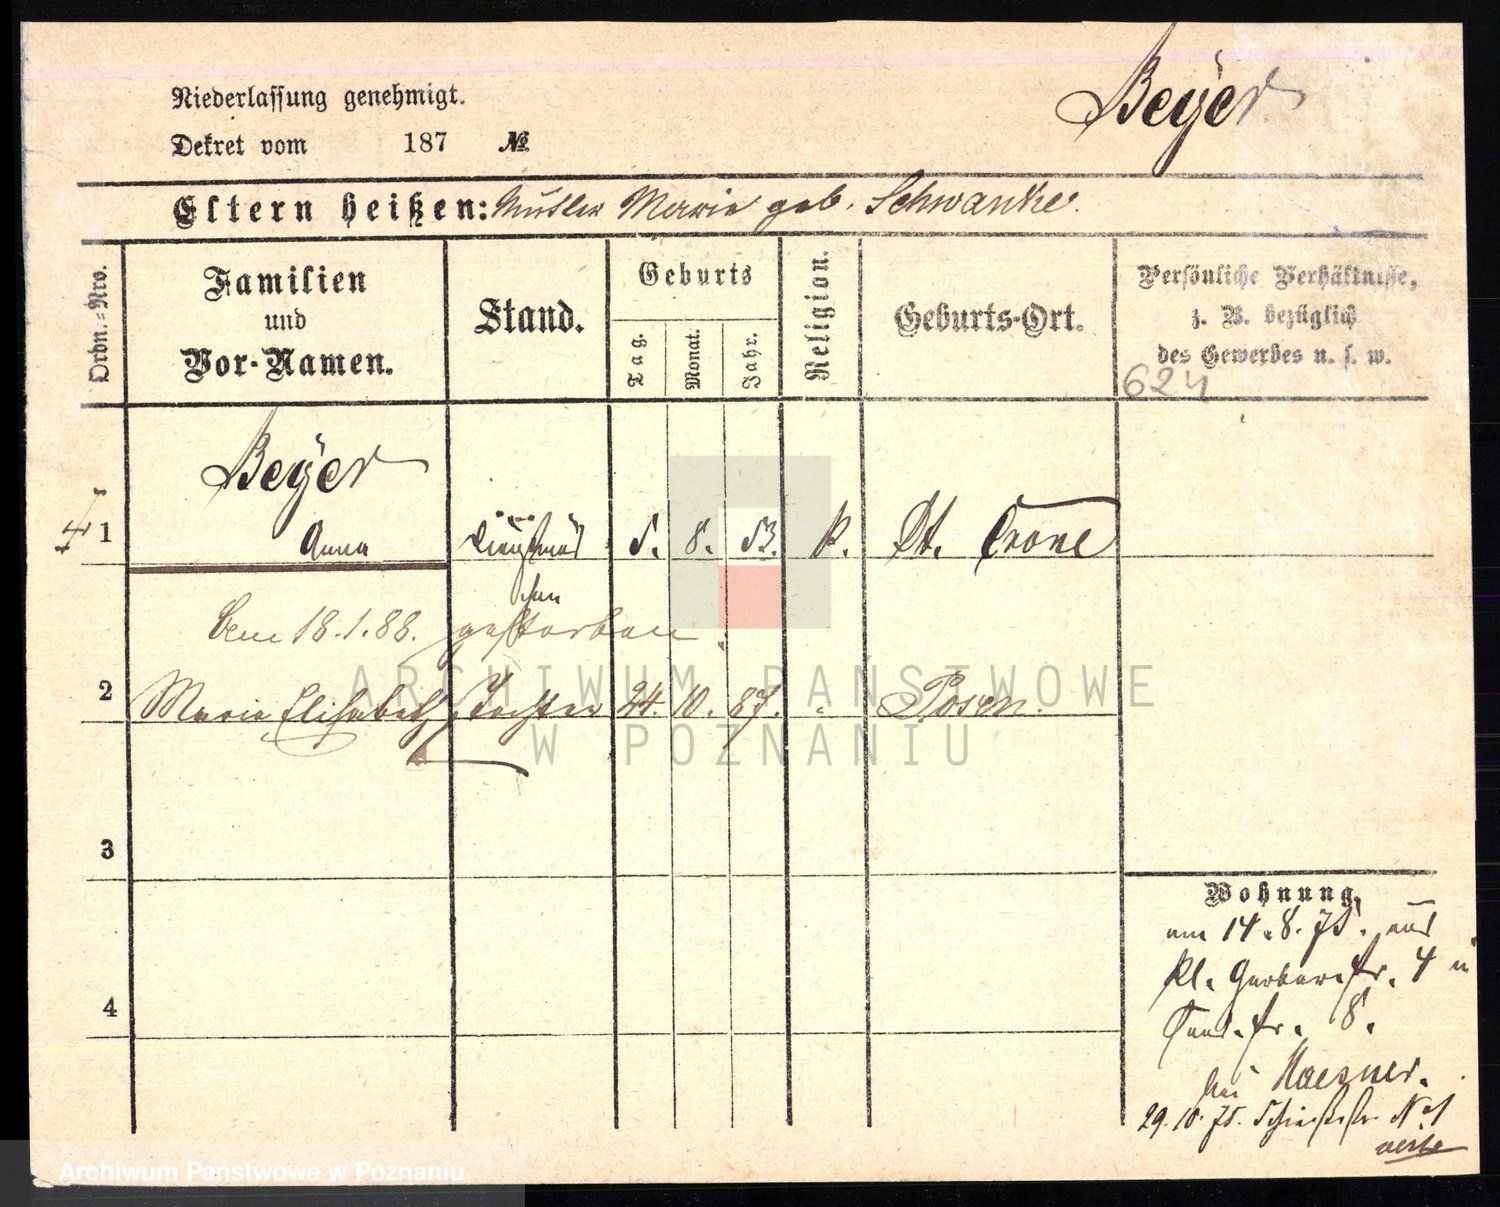 Beyer
Niederlassung genehmigt.
Dekret vom 187 №
Eltern heißen: Mutter Marie geb. Schwanke.
Ordn.=Nro.
Familien und Vor-Namen.
Stand.
Geburts
Tag.
Monat.
Jahr.
Religion.
Geburts-Ort.
Persönliche Verhältnisse,
z. B. bezüglich
des Gewerbes u. s. w.
624
Beyer
1 Anna 5. 8. 53. k. Dt. Crone
18.1.88. gestorben
2 Marie Elisabeth, Tochter 24. 10. 87. Posen.
3
4
Wohnung.
am 14.8.75. aus
Kl. Gerberstr. 4 n
8.
bei
29.10.75.
verte
ARCHIWUM PAŃSTWOWE
W POZNANIU
Archiwum Państwowe w Poznaniu